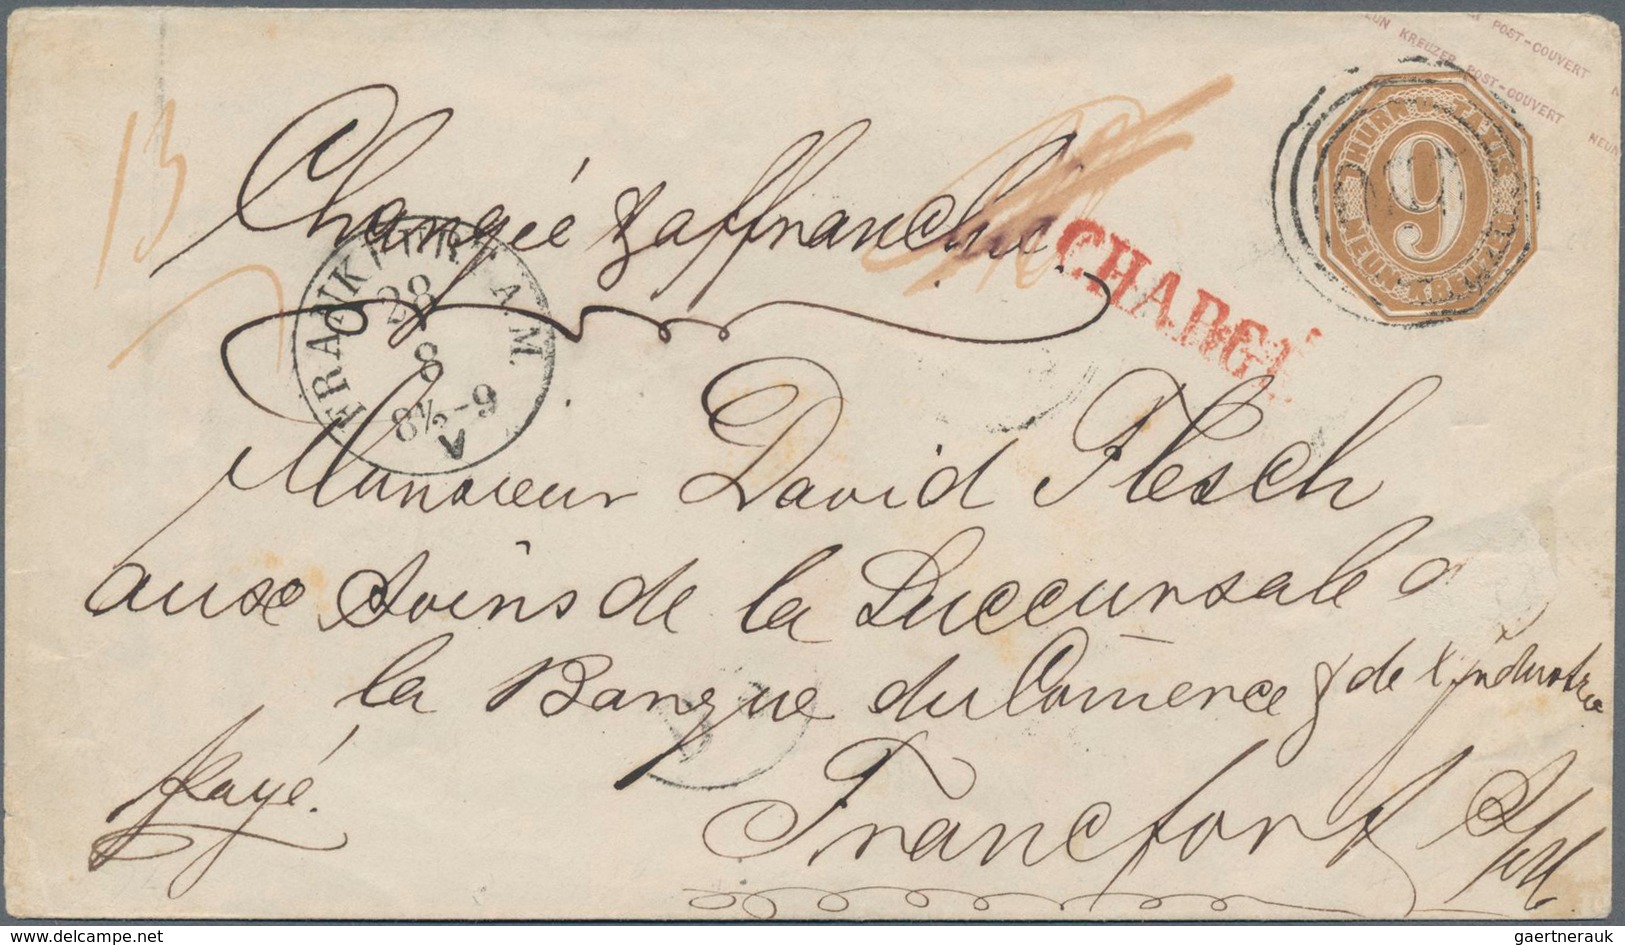 NEUN KREUZER POST-COUVERT
POST-COUVERT
NEUN
THURN U. TAXIS
9
NEUN KREUZER
13
Chargée & affranchie
CHARGÉ
FRANKFURT A. M.
28
8
8½-9
V
Monsieur David Flesch
aux Soins de la Succursale d
la Banque du Comerce & de l'industrie
payé.
Francfort S/M
delcampe.net
gaertnerauk